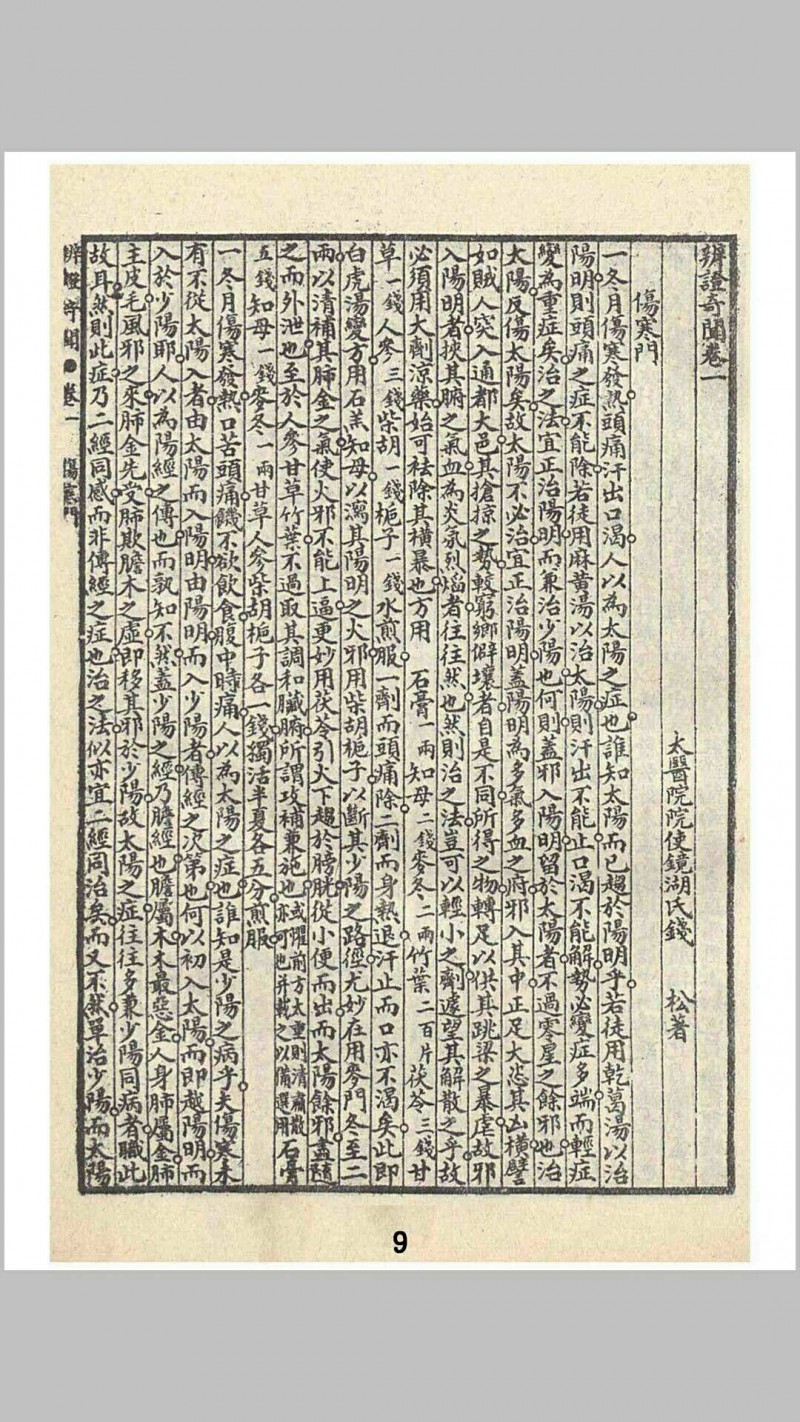 辨證奇聞卷一
太醫院院使鏡湖氏錢　松著
傷寒門
一冬月傷寒發熱頭痛汗出口渴人以為太陽之症也誰知太陽而已趨於陽明乎若徒用乾葛湯以治
陽明則頭痛之症不能除若徒用麻黃湯以治太陽則汗出不能止口渴不能解勢必變症多端而輕症
變為重症矣治之法宜正治陽明而兼治少陽也何則蓋邪入陽明留於太陽者不過零星之餘邪也治
太陽反傷太陽矣故太陽不必治宜正治陽明蓋陽明為多氣多血之府邪入其中正足大恣其凶橫譬
如賊人突入通都大邑其搶掠之勢較窮鄉僻壤者自是不同所得之物轉足以供其跳梁之暴虐故邪
入陽明者挾其腑之氣血為炎氛烈熖者往往然也然則治之法豈可以輕小之劑遽望其解散之乎故
必須用大劑涼藥始可祛除其橫暴也方用　石膏一兩知母二錢麥冬二兩竹葉二百片茯苓三錢甘
草一錢人參三錢柴胡一錢梔子一錢水煎服一劑而頭痛除二劑而身熱退汗止而口亦不渴矣此即
白虎湯變方用石羔知母以瀉其陽明之火邪用柴胡梔子以斷其少陽之路徑尤妙在用麥門冬至二
兩以清補其肺金之氣使火邪不能上逼更妙用茯苓引火下趨於膀胱從小便而出而太陽餘邪盡隨
之而外泄也至於人參甘草竹葉不過取其調和臟腑所謂攻補兼施也或懼前方太重則清肅散亦可也并載之以備選用石膏
五錢知母一錢麥冬一兩甘草人參柴胡梔子各一錢獨活半夏各五分煎服
一冬月傷寒發熱口苦頭痛饑不欲飲食腹中時痛人以為太陽之症也誰知是少陽之病乎夫傷寒未
有不從太陽入者由太陽而入陽明由陽明而入少陽者傳經之次第也何以初入太陽而即越陽明而
入於少陽耶人以為陽經之傳也而孰知不然蓋少陽之經乃膽經也膽屬木木最惡金人身肺屬金肺
主皮毛風邪之來肺金先受肺欺膽木之虛即移其邪於少陽故太陽之症往往多兼少陽同病者職此
故耳然則此症乃二經同感而非傳經之症也治之法似亦宜二經同治矣而又不然單治少陽而太陽
辨證奇聞●卷一　傷寒門
9